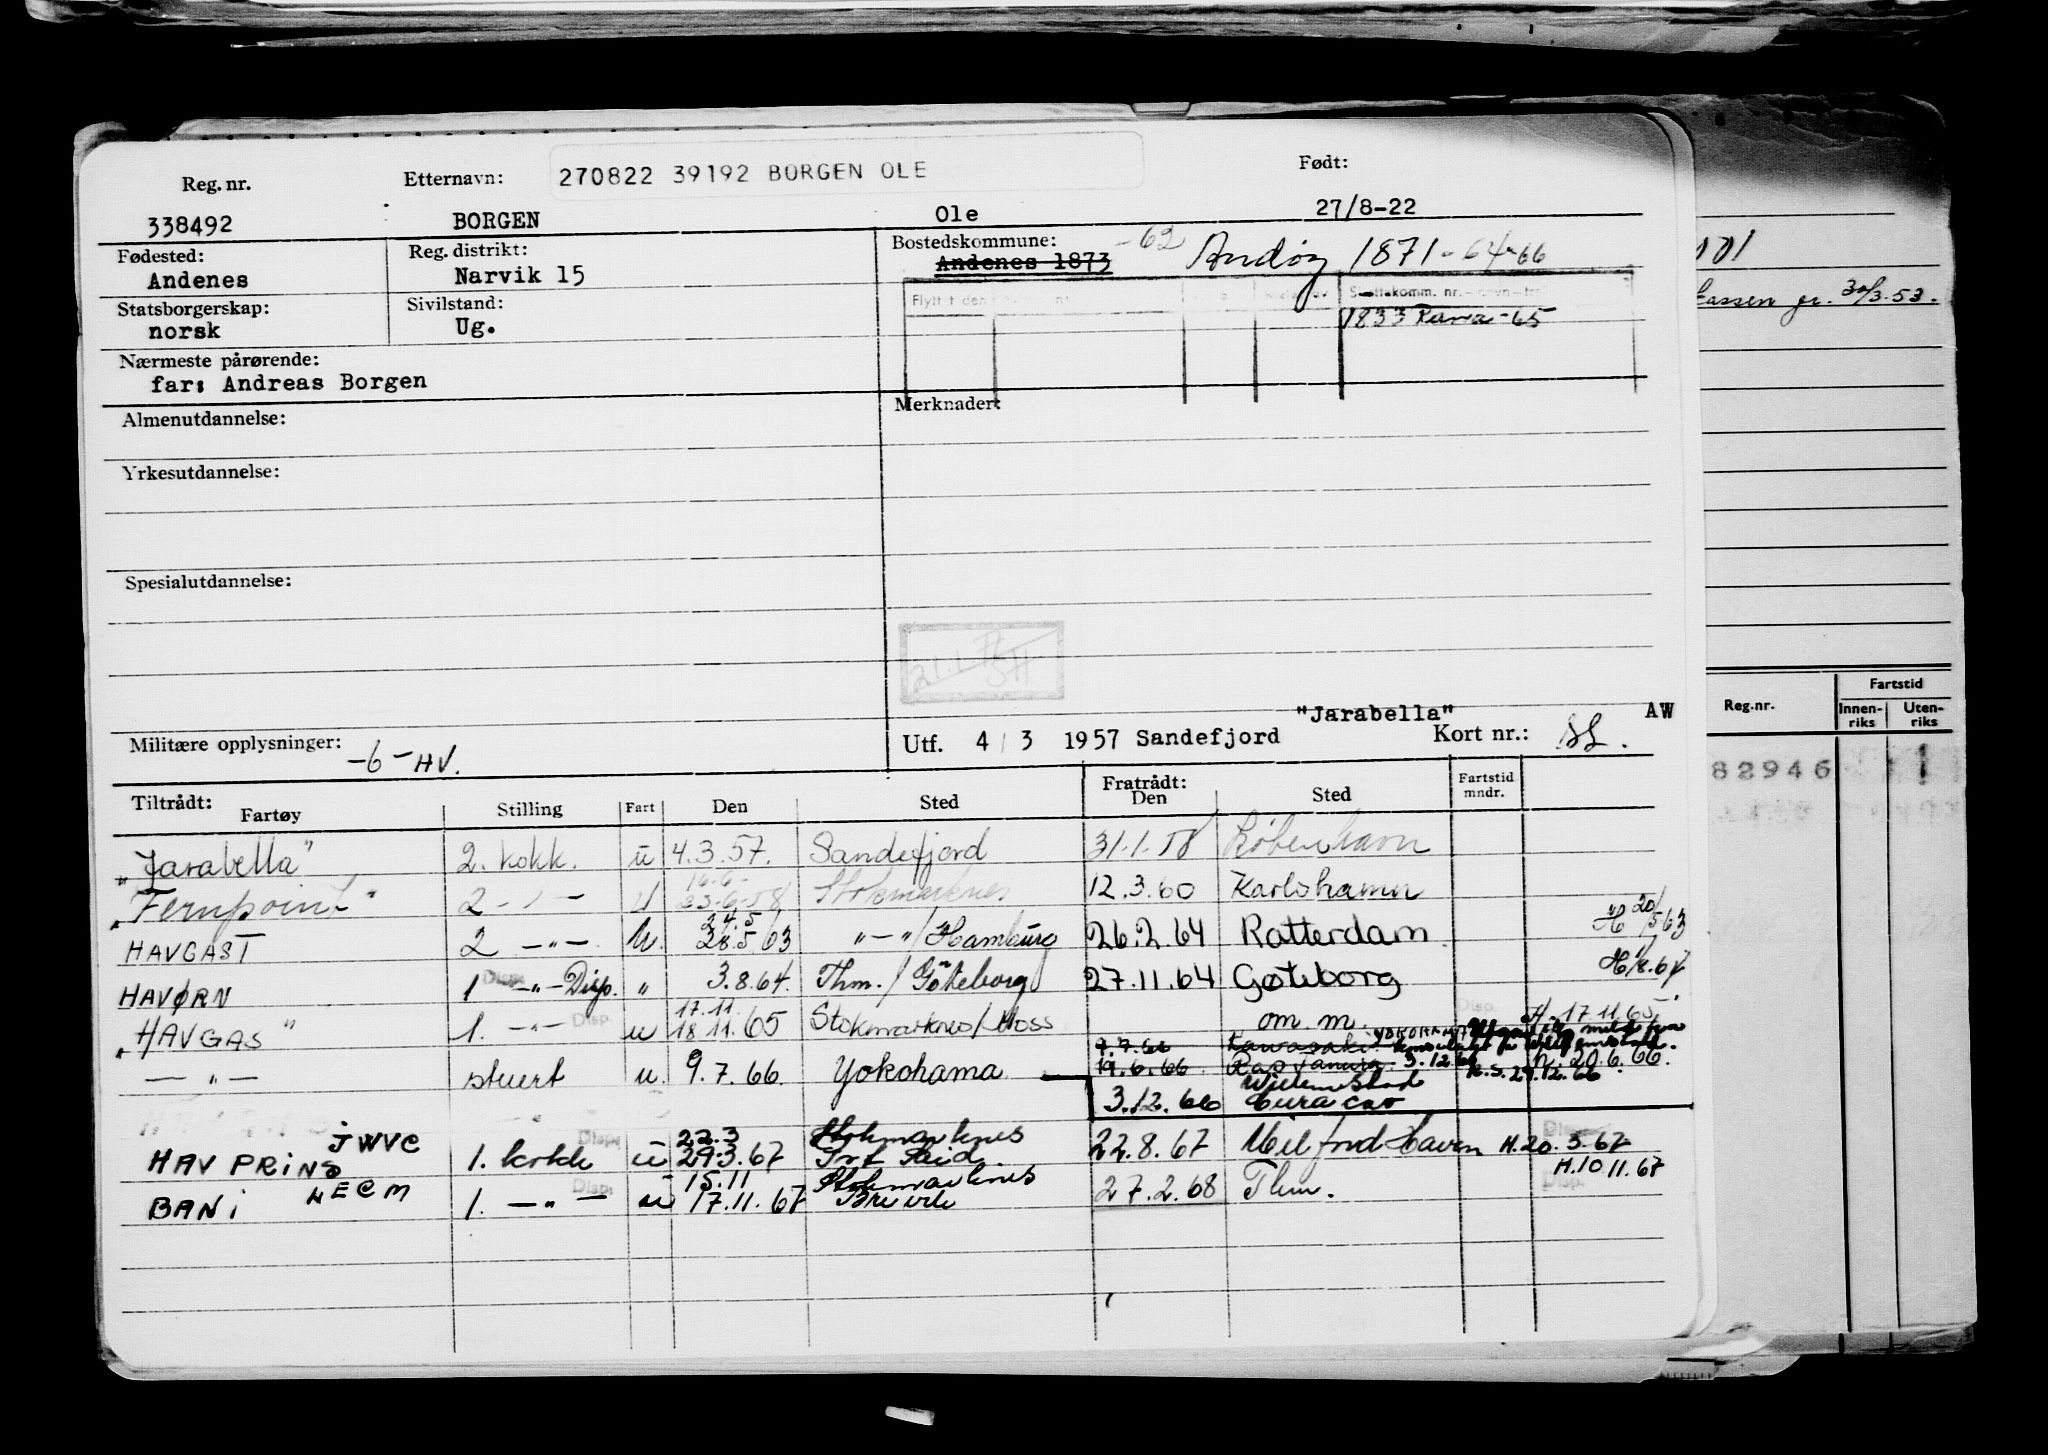 Reg. nr. Etternavn: 270822 39192 BORGEN OLE Født:
338492 BORGEN Ole 27/8-22
Fødested: Reg. distrikt: Bostedskommune: -62 Andøy 1871-64-66
Andenes Narvik 15 Andenes 1873
Statsborgerskap: Sivilstand:
norsk Ug. 1833 Rana -65
Nærmeste pårørende:
far: Andreas Borgen
Almenutdannelse: Merknader:
Yrkesutdannelse:
Spesialutdannelse:
"Jarabella" AW
Militære opplysninger: -6-HV. Utf. 4/3 1957 Sandefjord Kort nr.:
Tiltrådt: Fartøy Stilling Fart Den Sted Fratrådt: Den Sted Fartstid mndr.
"Jarabella" 2. kokk. u 4.3.57. Sandefjord 31.1.58 København
16.6-
"Fernpoint" 2 - " - U 23.6.58 Stokmarknes 12.3.60 Karlshamn
24.5
HAVGAST 2 - " - U. 28.5.63 " - " / Hamburg 26.2.64 Rotterdam H 20/5 63
HAVØRN 1 - " - Disp. " 3.8.64. Thm. / Göteborg 27.11.64 Gøteborg
17.11.
"HAVGAS" 1. - " - Disp. u 18.11.65 Stokmarknes / Moss om m. H. 17.11.65
7.7.66 Kawasaki YOKOHAMA
- " - stuert u. 9.7.66 Yokohama 19.6.66 Ras Tanura 3.12.66 H. 20.6.66.
Willemstad
3.12.66 Curacao
22.3 Stokmarknes
HAV PRINS JWVC 1. kokk u 29.3.67 Prt Said 22.8.67 Milford Haven H. 20.3.67
15.11 Stokmarknes H. 10 11.67
BANI LECM 1. - " - u 17.11.67 Brevik 27.2.68 Thm.
101
30/3.53.
Reg.nr. Fartstid
Innen-riks Uten-riks
82946 1